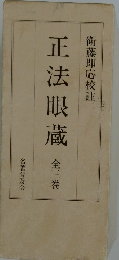 衛藤即応校註
正法眼蔵 全三巻